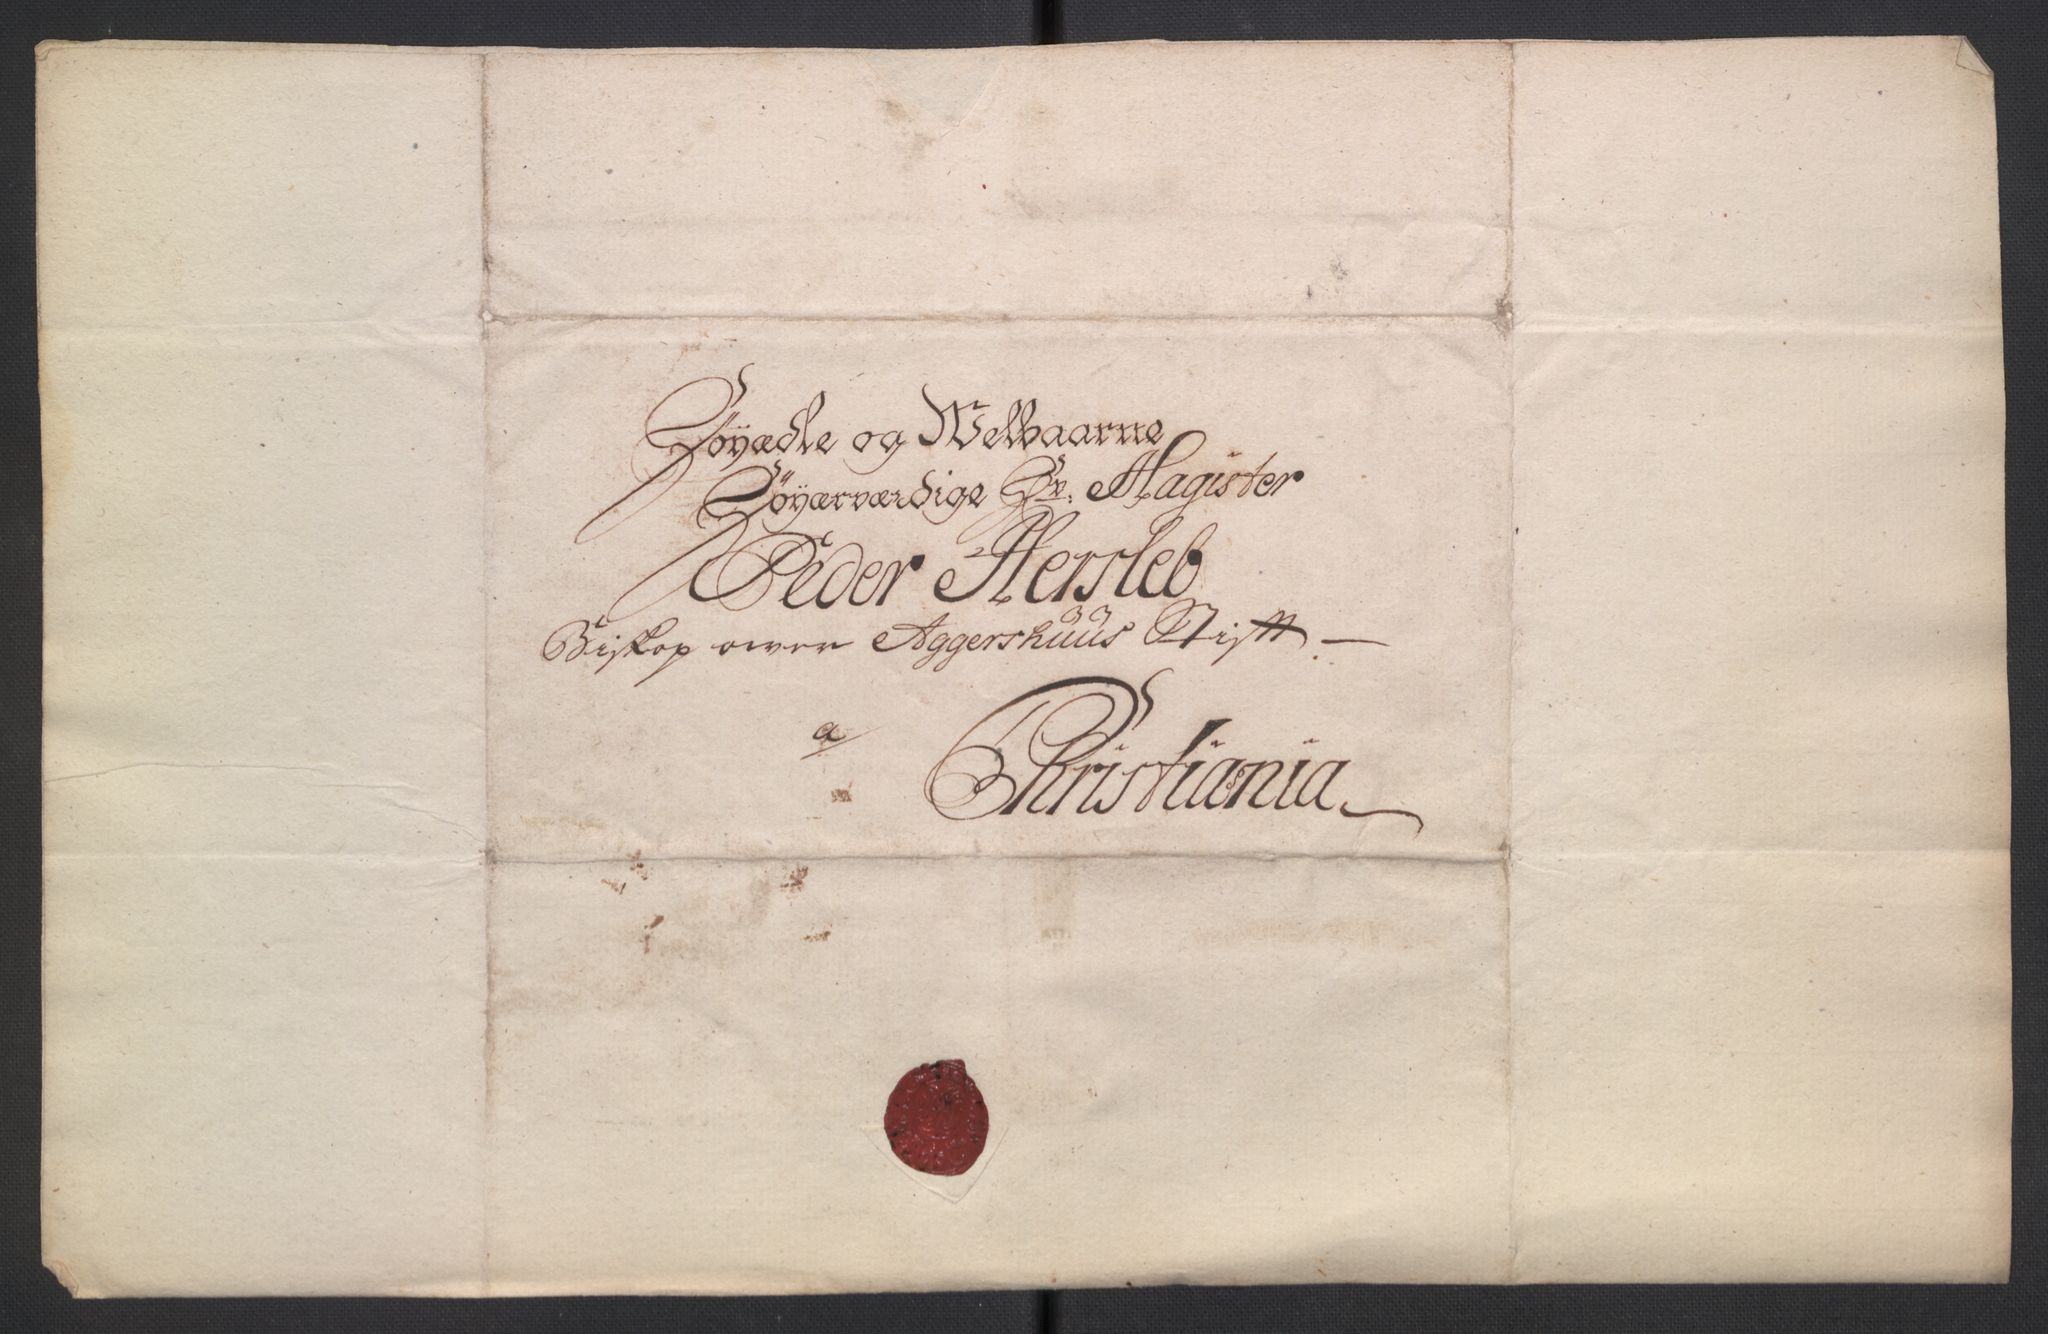 Høyædle og Welbaarne
Høyærværdige Hr: Magister
Peder Hersleb
Biskop over Aggershuus Stift
a
Christiania